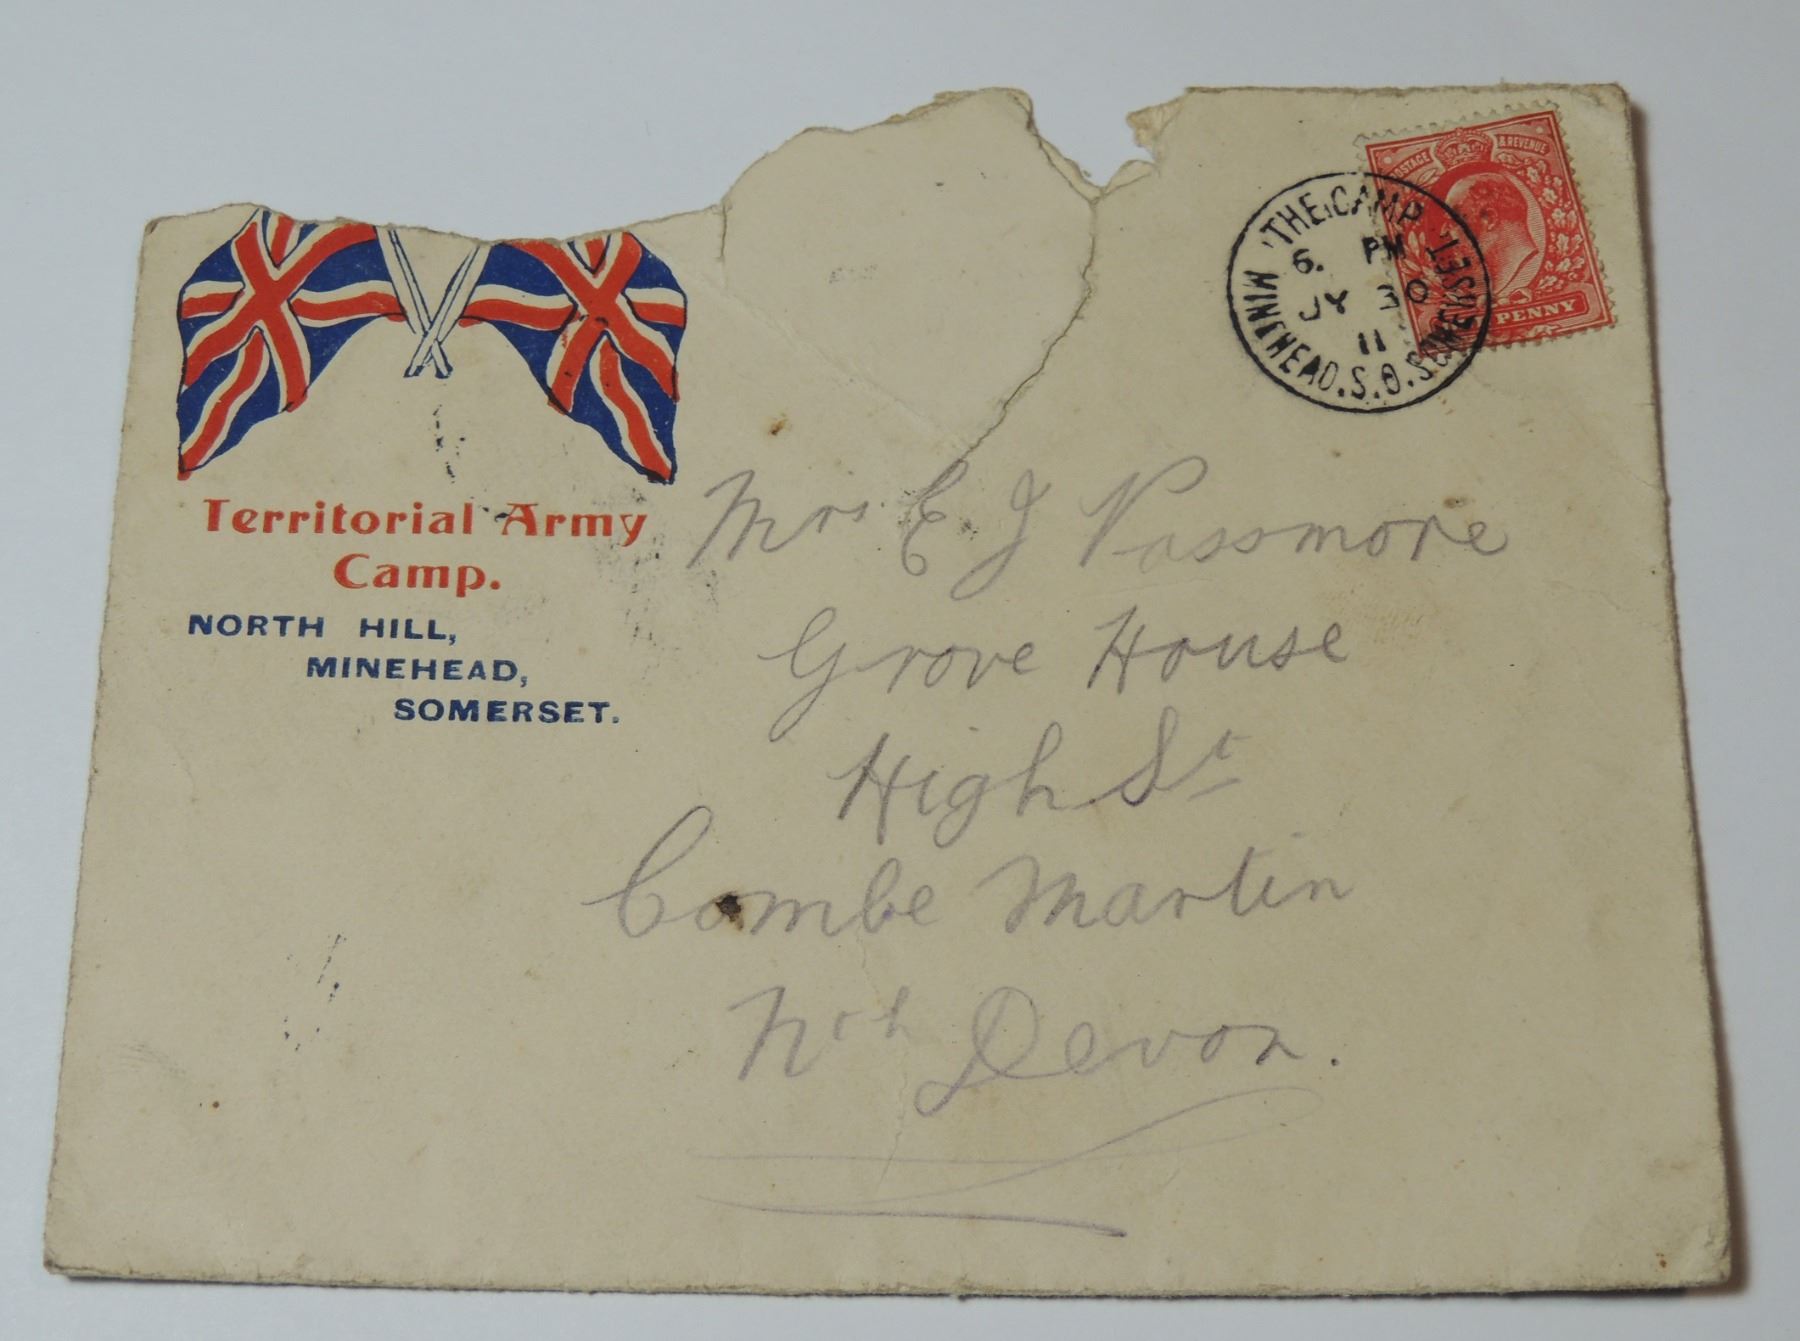 Territorial Army
Camp.
NORTH HILL,
MINEHEAD,
SOMERSET.
POSTAGE & REVENUE
PENNY
THE CAMP
6. PM
JY 30
11
MINEHEAD.S.O.SOMERSET.
Mrs E J Passmore
Grove House
High St
Combe Martin
Nth Devon.